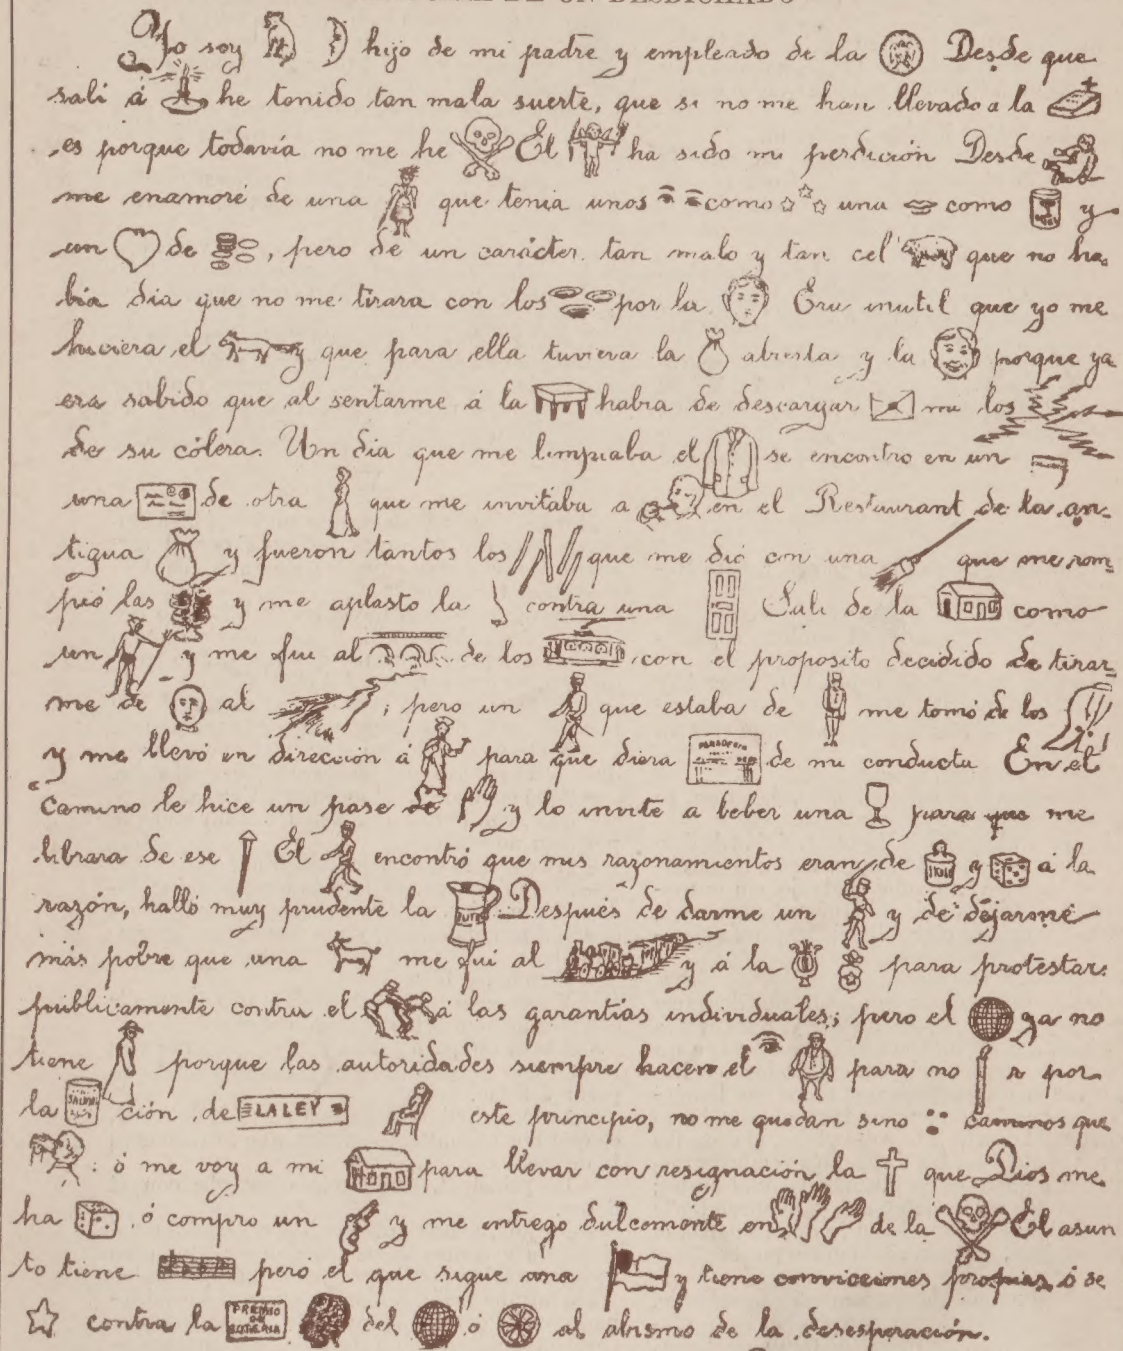 UN DESDICHADO
Yo soy hijo de mi padre y empleado de la Desde que
sali á he tenido tan mala suerte, que si no me han llevado a la
es porque todavía no me he El ha sido mi perdición Desde
me enamoré de una que tenia unos como una como y
un de , pero de un carácter tan malo y tan cel que no ha-
bía dia que no me tirara con los por la Era inutil que yo me
hiciera el y que para ella tuviera la abierta y la porque ya
era sabido que al sentarme á la habra de descargar mi los
de su cólera. Un dia que me limpiaba el se encontro en un
una de otra que me invitaba a en el Restaurant de la an-
tigua y fueron tantos los que me dió con una que me rom-
pió las y me aplasto la contra una Sali de la como
un y me fui al de los con el proposito decidido de tirar-
me de al ; pero un que estaba de me tomó de los
y me llevó en dirección á para que diera PANADERIA de mi conducta En el
camino le hice un pase de y lo invité a beber una para que me
librara de ese El encontró que mis razonamientos eran de y á la
razón, halló muy prudente la Después de darme un y de dejarme
más pobre que una me fui al y á la para protestar
publicamente contra el á las garantías individuales; pero el ya no
tiene porque las autoridades siempre hacen el para no r por
la ción de LA LEY este principio, no me quedan sino : caminos que
: ó me voy a mi para llevar con resignación la que Dios me
ha ó compro un y me entrego dulcemente en de la El asun
to tiene pero el que sigue una y tiene convicciones propias ó se
contra la PREMIO DE del ó al abismo de la desesperación.